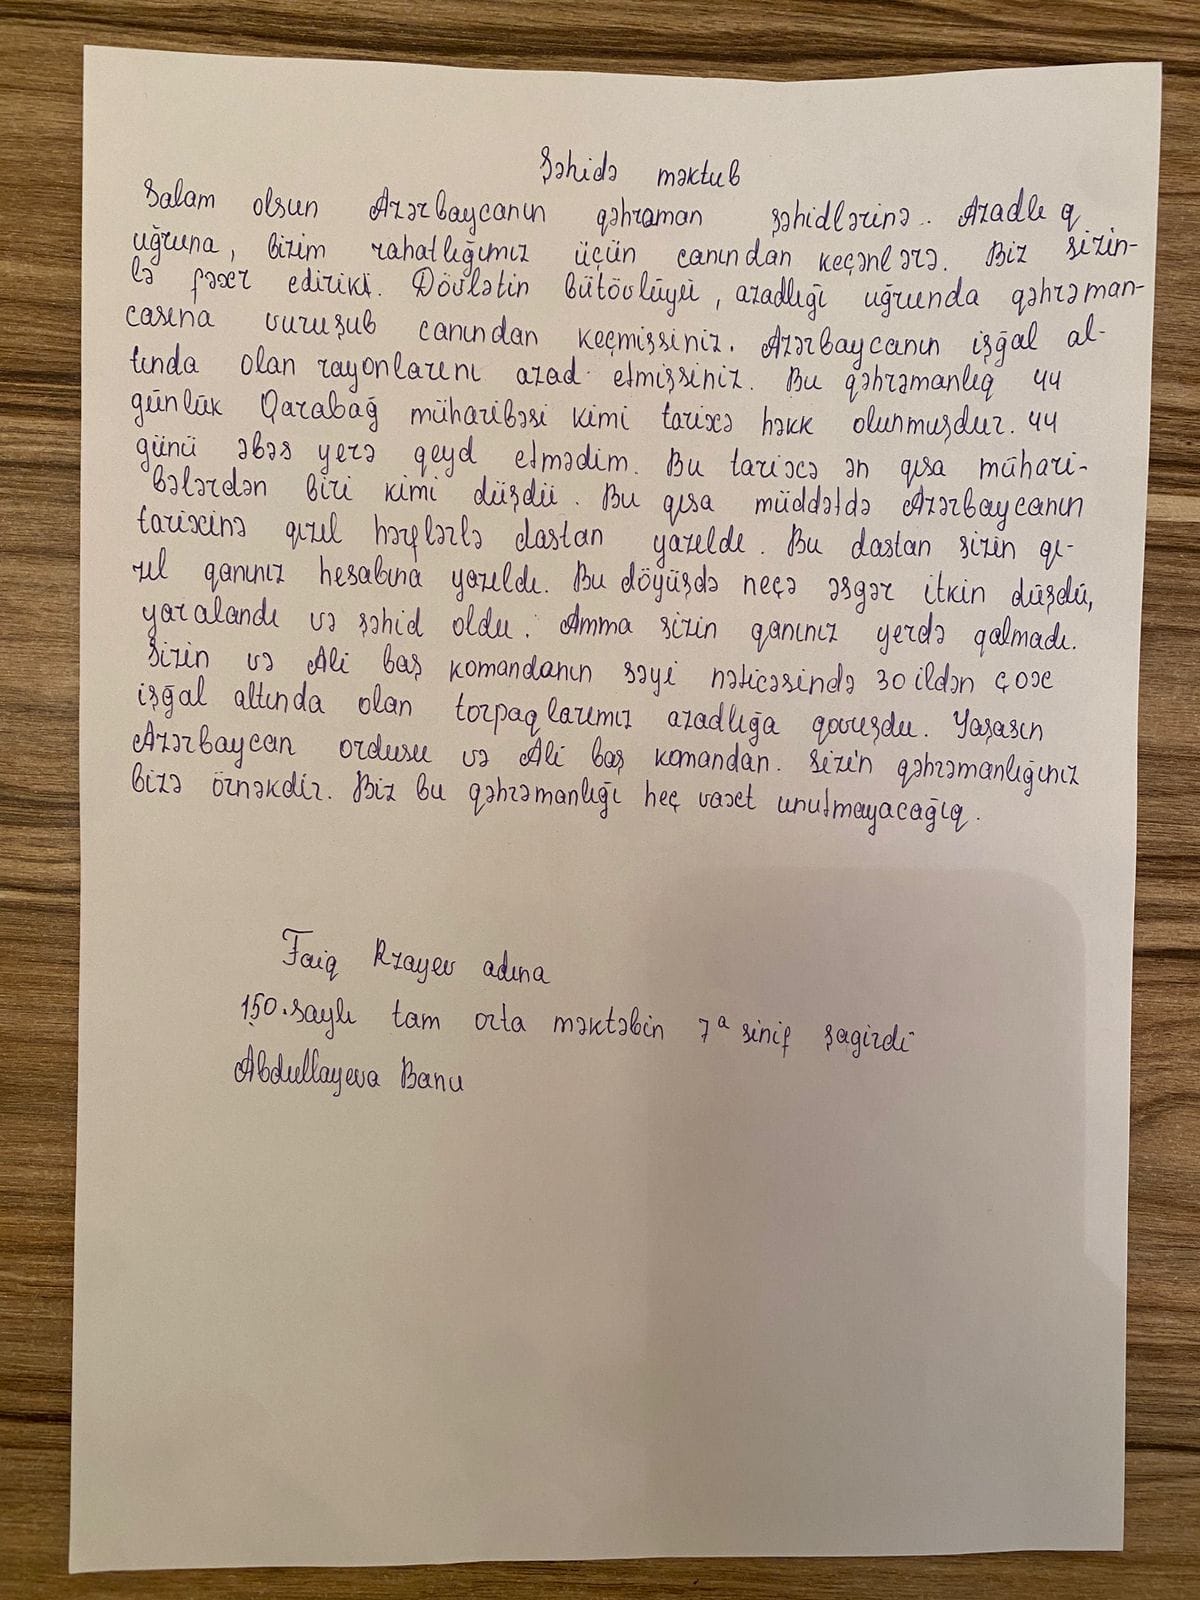 Şəhidə məktub
Salam olsun Azərbaycanın qəhraman şəhidlərinə.. Azadlıq
uğruna, bizim rahatlığımız üçün canından keçənlərə. Biz sizin-
lə fəxr edirik. Dövlətin bütövlüyü, azadlığı uğrunda qəhrəman-
casına vuruşub canından keçmişsiniz. Azərbaycanın işğal al-
tında olan rayonlarını azad etmişsiniz. Bu qəhrəmanlıq 44
günlük Qarabağ müharibəsi kimi tarixə həkk olunmuşdur. 44
günü əbəs yerə qeyd etmədim. Bu tarixə ən qısa mühari-
bələrdən biri kimi düşdü. Bu qısa müddətdə Azərbaycanın
tarixinə qızıl hərflərlə dastan yazıldı. Bu dastan sizin qı-
zıl qanınız hesabına yazıldı. Bu döyüşdə neçə əsgər itkin düşdü,
yaralandı və şəhid oldu. Amma sizin qanınız yerdə qalmadı.
Sizin və Ali baş komandanın səyi nəticəsində 30 ildən çox
işğal altında olan torpaqlarımız azadlığa qovuşdu. Yaşasın
Azərbaycan ordusu və Ali baş komandan. Sizin qəhrəmanlığınız
bizə örnəkdir. Biz bu qəhrəmanlığı heç vaxt unutmayacağıq.
Faiq Rzayev adına
150 saylı tam orta məktəbin 7ᵃ sinif şagirdi
Abdullayeva Banu